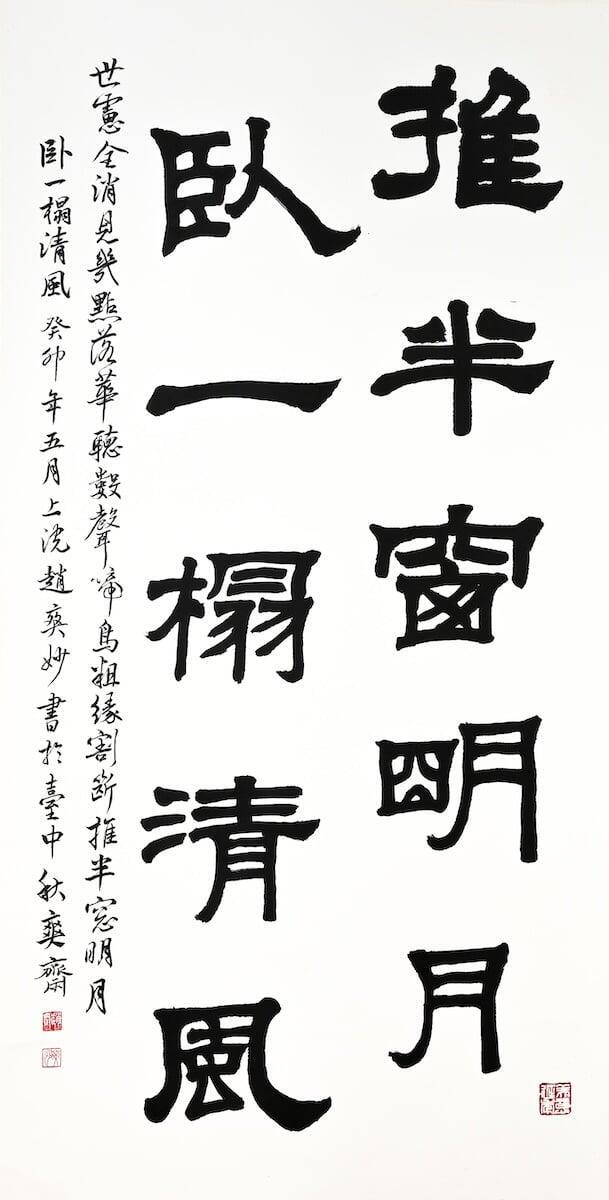 推半窗明月
臥一榻清風
世慮全消見幾點落華聽數聲啼鳥粗緣割斷推半窓明月
臥一榻清風 癸卯年五月上浣趙奕妙書於臺中秋爽齋